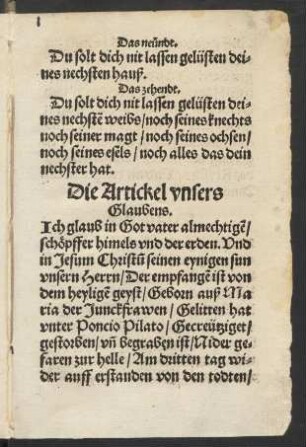 Das neündt.
Du solt dich nit lassen gelüsten dei⸗
nes nechsten hauß.
Das zehendt.
Du solt dich nit lassen gelüsten dei⸗
nes nechstē weibs/noch seines knechts
noch seiner magt/noch seines ochsen/
noch seines esels/noch alles das dein
nechster hat.
Die Artickel vnsers
Glaubens.
Ich glaub in Got vater almechtigē/
schöpffer himels vnd der erden. Vnd
in Jesum Christū seinen eynigen sun
vnsern Herrn/Der empfangē ist von
dem heyligē geyst/Geborn auß Ma
ria der Junckfrawen/Gelitten hat
vnter Poncio Pilato/Gecreützigt/
gestorben/vñ begraben ist/Nider ge⸗
faren zur helle/Am dritten tag wi⸗
der auff erstanden von den todten/